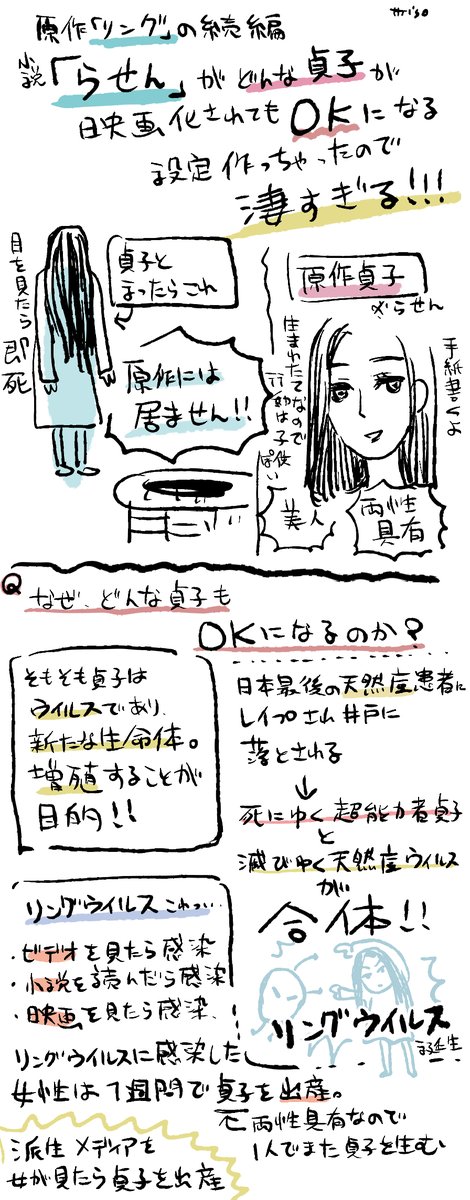 原作「リング」の続編
小説「らせん」がどんな貞子が
映画化されてもOKになる
設定作っちゃったので
凄すぎる!!!
目を見たら即死
貞子と
まったらこれ
原作には
居ません!!
原作貞子
※らせん
生まれたてなので
行動は子供っぽい
手紙書くよ
美人
両性
具有
Q
なぜ、どんな貞子も
OKになるのか?
そもそも貞子は
ウイルスであり、
新たな生命体。
増殖することが
目的!!
日本最後の天然痘患者に
レイプされ井戸に
落とされる
↓
死にゆく超能力者貞子
と
滅びゆく天然痘ウイルス
が
合体!!
リングウイルス
誕生
リングウイルスこれっ…
・ビデオを見たら感染
・小説を読んだら感染
・映画を見たら感染、
リングウイルスに感染した
女性は1週間で貞子を出産。
両性具有なので
1人でまた貞子を生む
派生メディアを
女が見たら貞子を出産